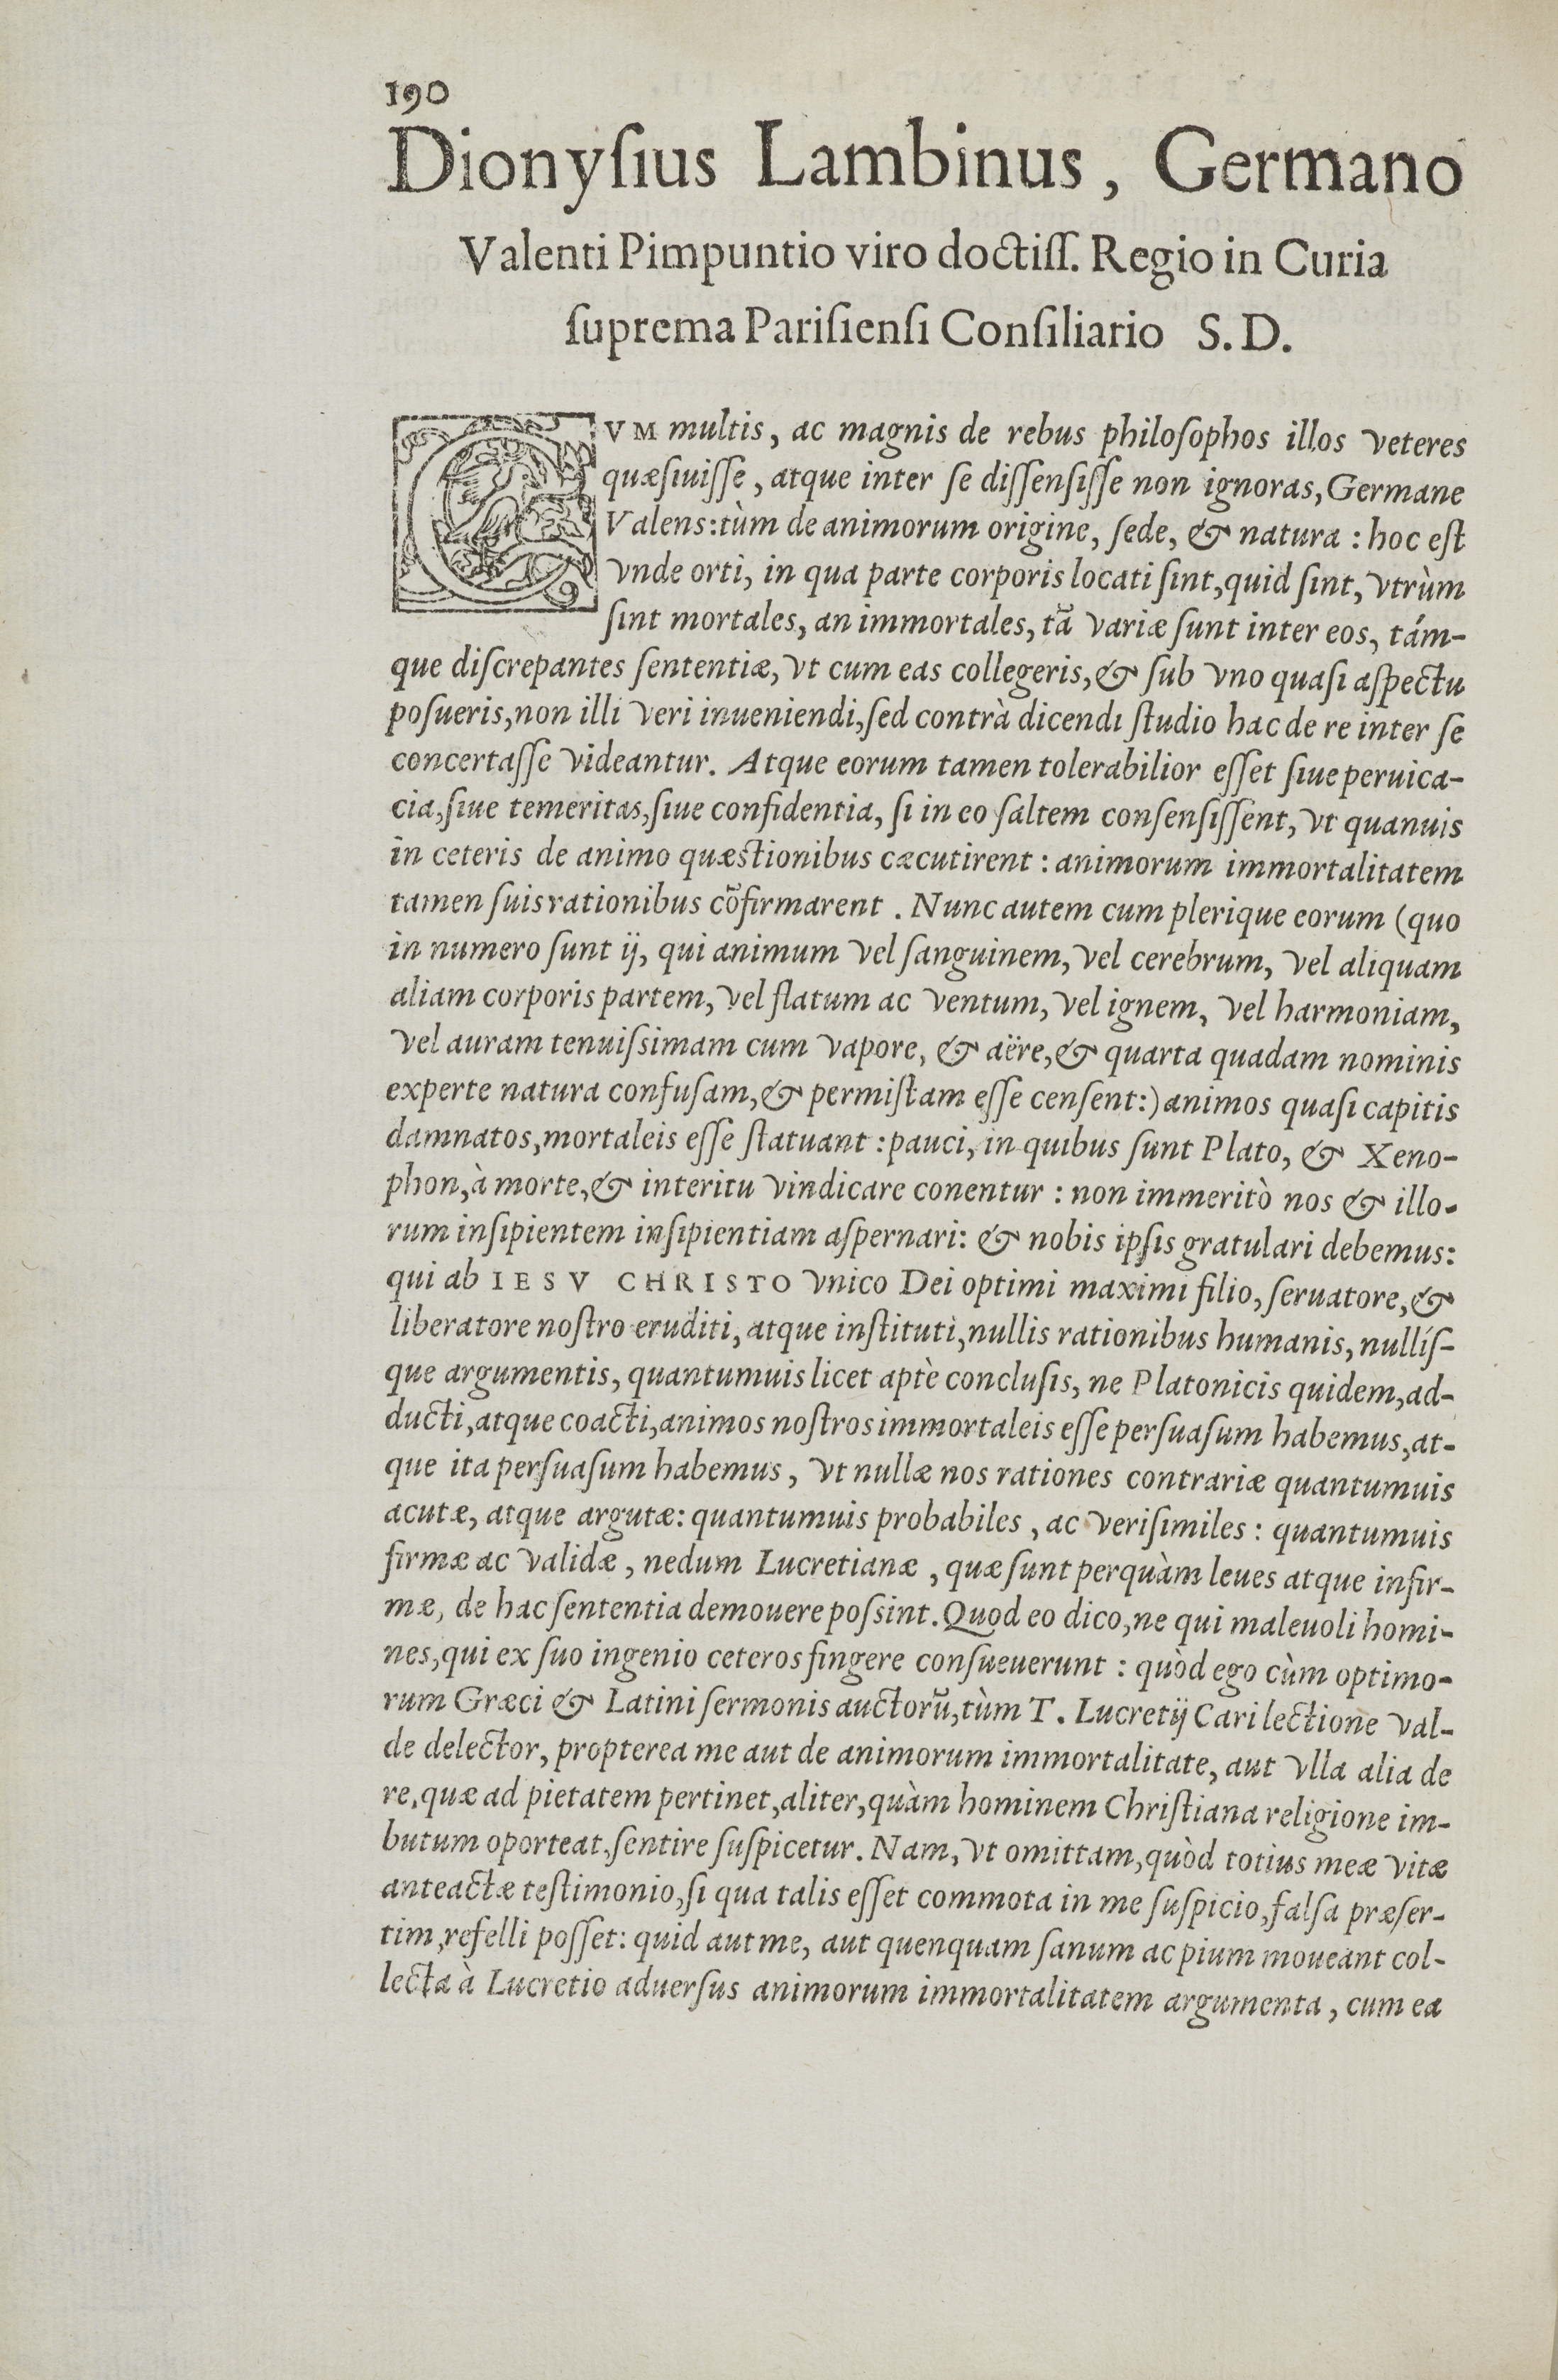 190
Dionyſius Lambinus, Germano
Valenti Pimpuntio viro doctiſſ. Regio in Curia
ſuprema Pariſienſi Conſiliario S. D.
CVM multis, ac magnis de rebus philoſophos illos veteres
quæſiuiſſe, atque inter ſe diſſenſiſſe non ignoras, Germane
Valens: tùm de animorum origine, ſede, & natura: hoc eſt
vnde orti, in qua parte corporis locati ſint, quid ſint, vtrùm
ſint mortales, an immortales, tã variæ ſunt inter eos, tám-
que diſcrepantes ſententiæ, vt cum eas collegeris, & ſub vno quaſi aſpectu
poſueris, non illi veri inueniendi, ſed contrà dicendi ſtudio hac de re inter ſe
concertaſſe videantur. Atque eorum tamen tolerabilior eſſet ſiue peruica-
cia, ſiue temeritas, ſiue confidentia, ſi in eo ſaltem conſenſiſſent, vt quanuis
in ceteris de animo quæstionibus cæcutirent: animorum immortalitatem
tamen ſuis rationibus cõfirmarent. Nunc autem cum plerique eorum (quo
in numero ſunt ij, qui animum vel ſanguinem, vel cerebrum, vel aliquam
aliam corporis partem, vel flatum ac ventum, vel ignem, vel harmoniam,
vel auram tenuiſsimam cum vapore, & aëre, & quarta quadam nominis
experte natura confuſam, & permiſtam eſſe cenſent:) animos quaſi capitis
damnatos, mortaleis eſſe ſtatuant: pauci, in quibus ſunt Plato, & Xeno-
phon, à morte, & interitu vindicare conentur: non immeritò nos & illo-
rum inſipientem inſipientiam aſpernari: & nobis ipſis gratulari debemus:
qui ab IESV CHRISTO vnico Dei optimi maximi filio, ſeruatore, &
liberatore noſtro eruditi, atque inſtituti, nullis rationibus humanis, nullíſ-
que argumentis, quantumuis licet aptè concluſis, ne Platonicis quidem, ad-
ducti, atque coacti, animos noſtros immortaleis eſſe perſuaſum habemus, at-
que ita perſuaſum habemus, vt nullæ nos rationes contrariæ quantumuis
acutæ, atque argutæ: quantumuis probabiles, ac veriſimiles: quantumuis
firmæ ac validæ, nedum Lucretianæ, quæ ſunt perquàm leues atque infir-
mæ, de hac ſententia demouere poſsint. Quod eo dico, ne qui maleuoli homi-
nes, qui ex ſuo ingenio ceteros fingere conſueuerunt: quòd ego cùm optimo-
rum Græci & Latini ſermonis auctorũ, tùm T. Lucretij Cari lectione val-
de delector, propterea me aut de animorum immortalitate, aut vlla alia de
re, quæ ad pietatem pertinet, aliter, quàm hominem Chriſtiana religione im-
butum oporteat, ſentire ſuſpicetur. Nam, vt omittam, quòd totius meæ vitæ
anteactæ teſtimonio, ſi qua talis eſſet commota in me ſuſpicio, falſa præſer-
tim, refelli poſſet: quid aut me, aut quenquam ſanum ac pium moueant col-
lecta à Lucretio aduerſus animorum immortalitatem argumenta, cum ea